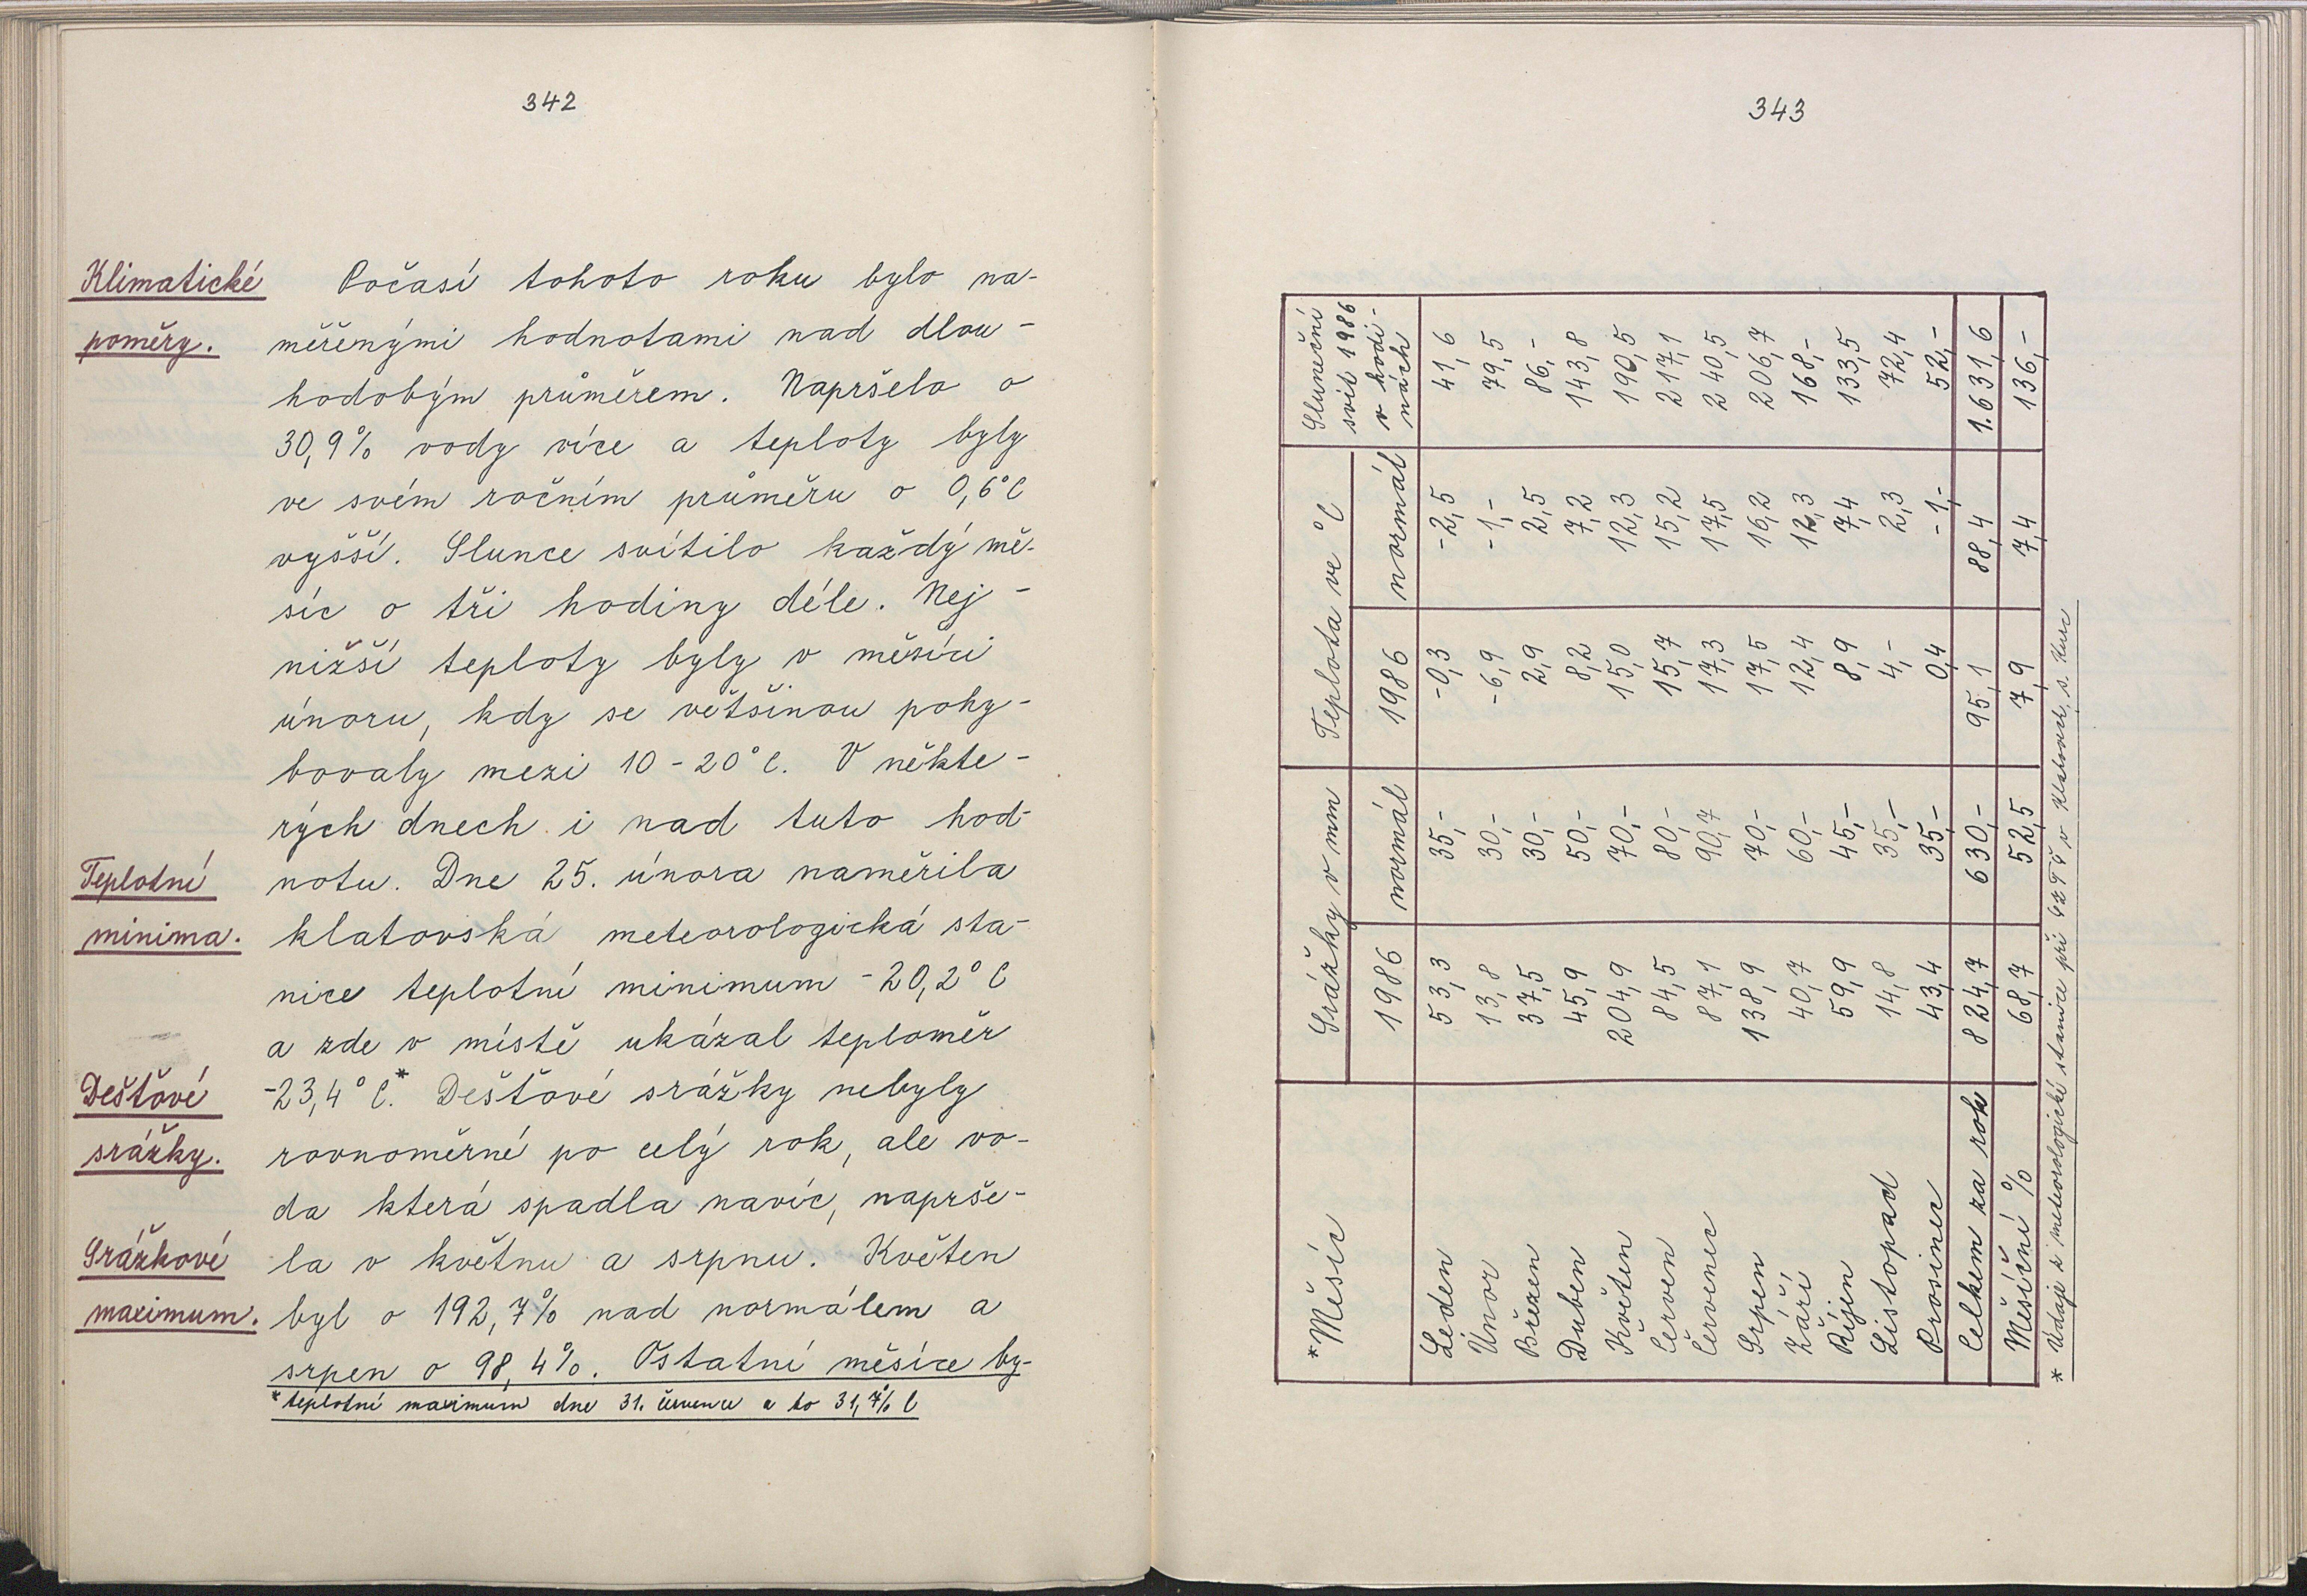 342
Klimatické
poměry.
Počasí tohoto roku bylo na-
měřenými hodnotami nad dlou-
hodobým průměrem. Napršelo o
30,9% vody více a teploty byly
ve svém ročním průměru o 0,6°C
vyšší. Slunce svítilo každý mě-
síc o tři hodiny déle. Nej-
nižší teploty byly v měsíci
únoru, kdy se většinou pohy-
bovaly mezi 10-20°C. V někte-
rých dnech i nad tuto hod-
Teplotní
notu. Dne 25. února naměřila
minima.
klatovská meteorologická sta-
nice teplotní minimum -20,2°C
a zde v místě ukázal teploměr
Dešťové
-23,4°C.* Dešťové srážky nebyly
srážky.
rovnoměrné po celý rok, ale vo-
da která spadla navíc, naprše-
Srážkové
la v květnu a srpnu. Květen
maximum.
byl o 192,7% nad normálem a
srpen o 98,4%. Ostatní měsíce by-
*teplotní maximum dne 31. července a to 31,7% C
343
*Měsíc Srážky v mm Teplota ve °C Sluneční
svit 1986
v hodi-
nách
1986 normál 1986 normál
Leden 53,3 35,- -0,3 -2,5 41,6
Únor 13,8 30,- -6,9 -1,- 79,5
Březen 37,5 30,- 2,9 2,5 86,-
Duben 45,9 50,- 8,2 7,2 143,8
Květen 204,9 70,- 15,0 12,3 190,5
Červen 84,5 80,- 15,7 15,2 217,1
Červenec 87,1 90,7 17,3 17,5 240,5
Srpen 138,9 70,- 17,5 16,2 206,7
Září 40,7 60,- 12,4 12,3 168,-
Říjen 59,9 45,- 8,9 7,4 133,5
Listopad 14,8 35,- 4,- 2,3 72,4
Prosinec 43,4 35,- 0,4 -1,- 52,-
Celkem za rok 824,7 630,- 95,1 88,4 1.631,6
Měsíční % 68,7 52,5 7,9 7,4 136,-
* Údaje z meteorologické stanice při v Klatovech, s. Kusc